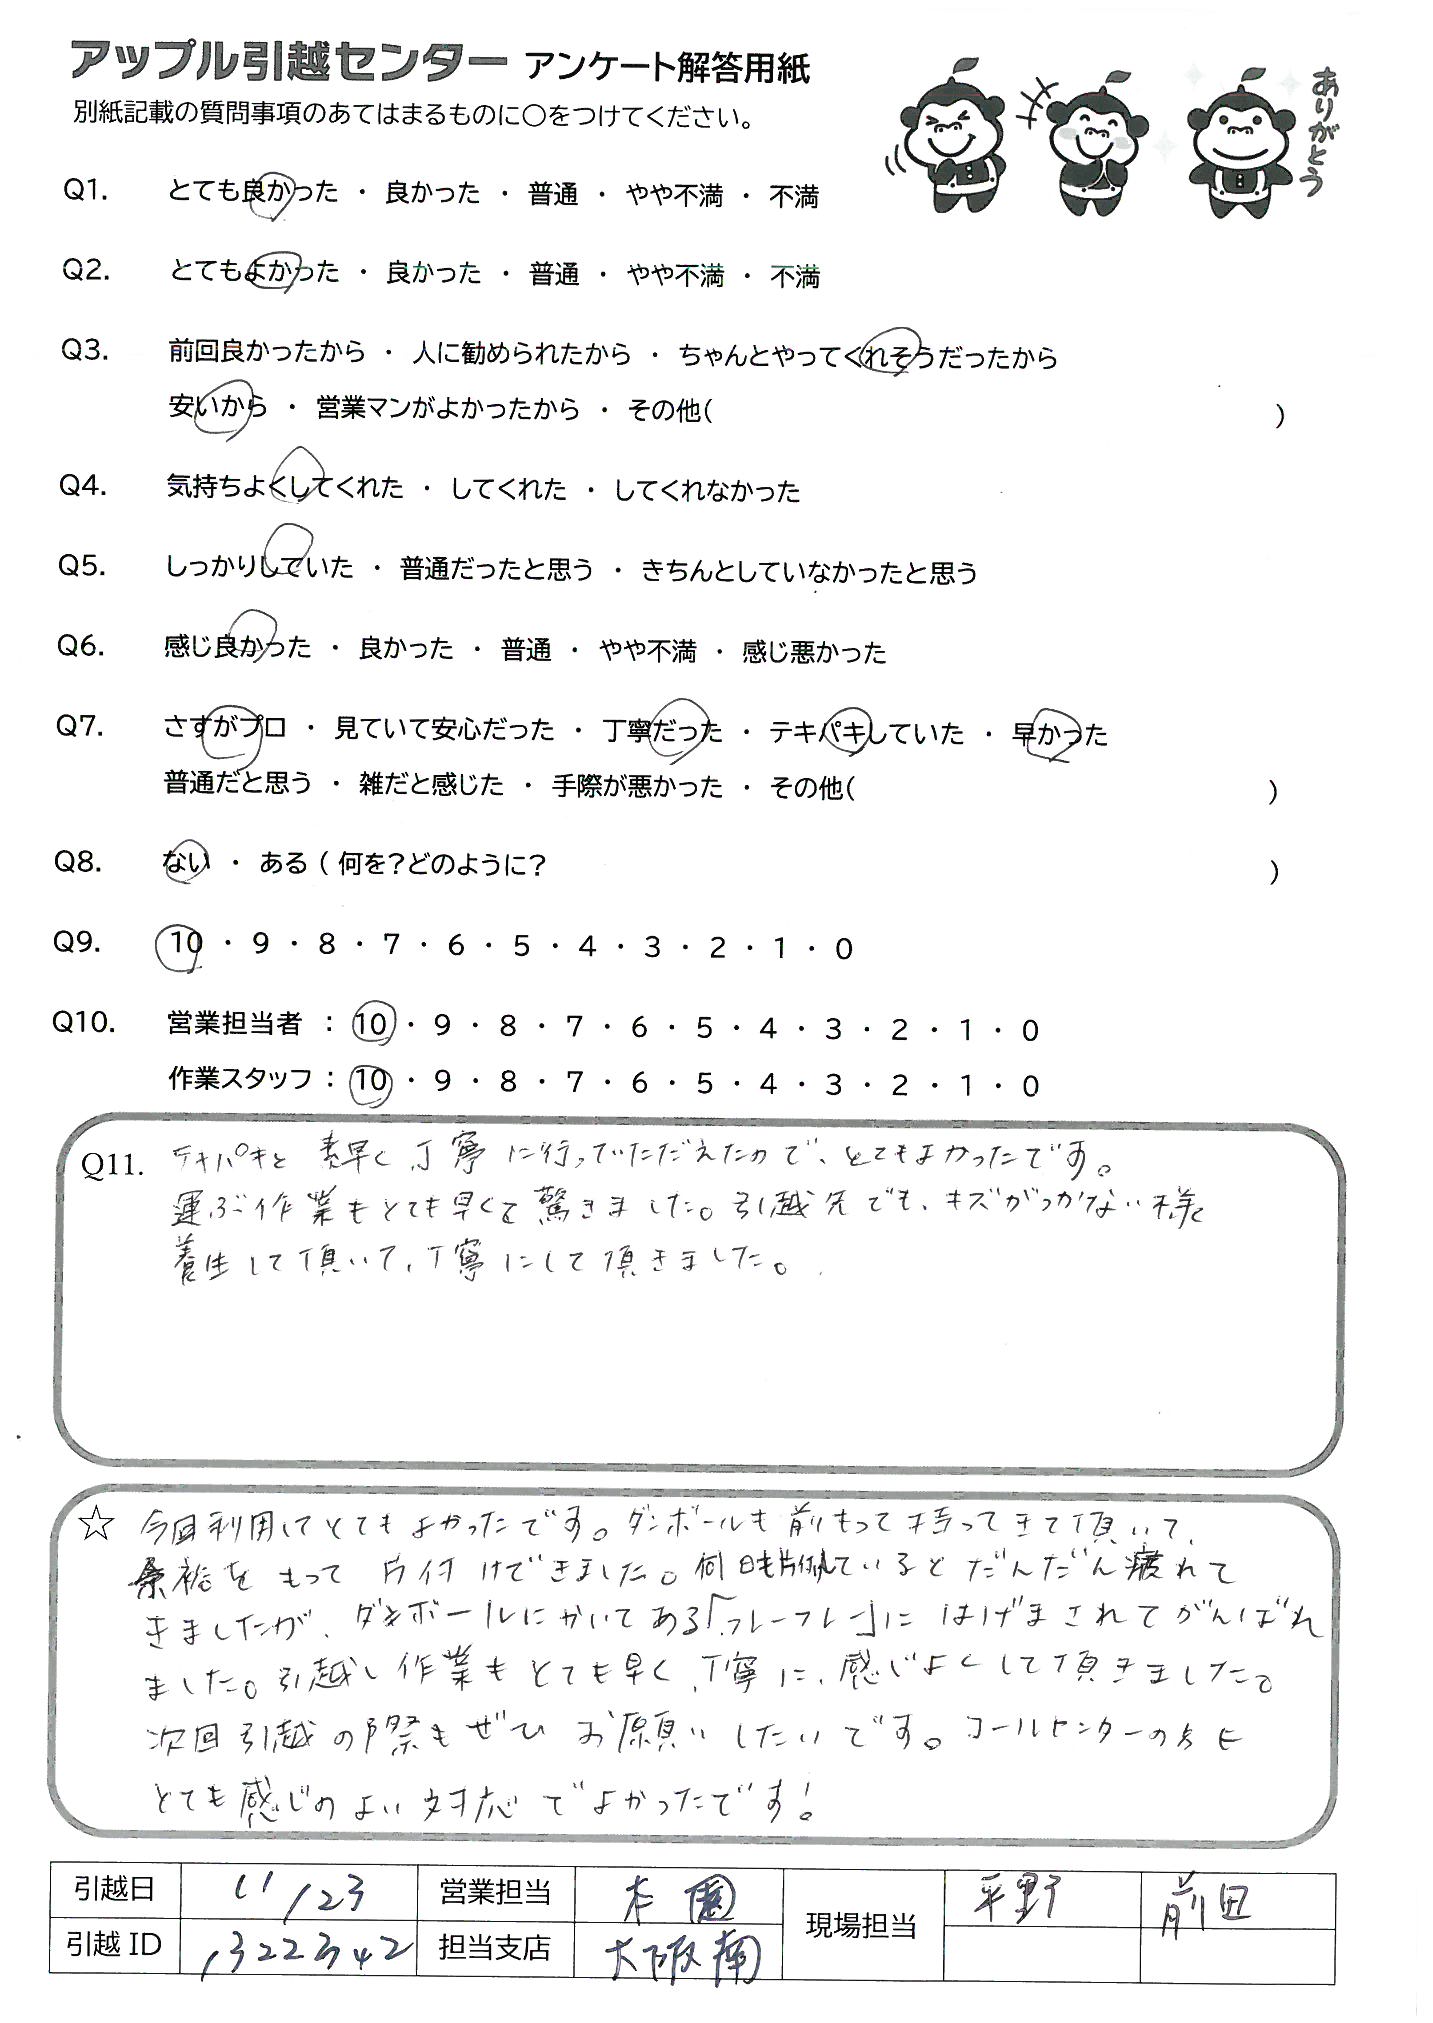 アップル引越センター アンケート解答用紙
別紙記載の質問事項のあてはまるものに○をつけてください。
ありがとう
Q1. とても良かった ・ 良かった ・ 普通 ・ やや不満 ・ 不満
Q2. とてもよかった ・ 良かった ・ 普通 ・ やや不満 ・ 不満
Q3. 前回良かったから ・ 人に勧められたから ・ ちゃんとやってくれそうだったから
安いから ・ 営業マンがよかったから ・ その他( )
Q4. 気持ちよくしてくれた ・ してくれた ・ してくれなかった
Q5. しっかりしていた ・ 普通だったと思う ・ きちんとしていなかったと思う
Q6. 感じ良かった ・ 良かった ・ 普通 ・ やや不満 ・ 感じ悪かった
Q7. さすがプロ ・ 見ていて安心だった ・ 丁寧だった ・ テキパキしていた ・ 早かった
普通だと思う ・ 雑だと感じた ・ 手際が悪かった ・ その他( )
Q8. ない ・ ある ( 何を?どのように? )
Q9. 10 ・ 9 ・ 8 ・ 7 ・ 6 ・ 5 ・ 4 ・ 3 ・ 2 ・ 1 ・ 0
Q10. 営業担当者 : 10 ・ 9 ・ 8 ・ 7 ・ 6 ・ 5 ・ 4 ・ 3 ・ 2 ・ 1 ・ 0
作業スタッフ : 10 ・ 9 ・ 8 ・ 7 ・ 6 ・ 5 ・ 4 ・ 3 ・ 2 ・ 1 ・ 0
Q11. テキパキと 素早く、丁寧に行っていただえたので、とてもよかったです。
運ぶ作業もとても早くて驚きました。引越先でも、キズがつかない様
養生して頂いて、丁寧にして頂きました。
☆ 今回利用してとてもよかったです。ダンボールも前もって持ってきて頂いて、
余裕をもって片付けできました。何日も片付けしているとだんだん疲れて
きましたが、ダンボールにかいてある「フレーフレー」にはげまされてがんばれ
ました。引越し作業もとても早く、丁寧に、感じよくして頂きました。
次回引越の際もぜひお願いしたいです。コールセンターの方も
とても感じのよい対応でよかったです!
引越日 11/23 営業担当 本園 現場担当 平野 前田
引越ID 1322342 担当支店 大阪南